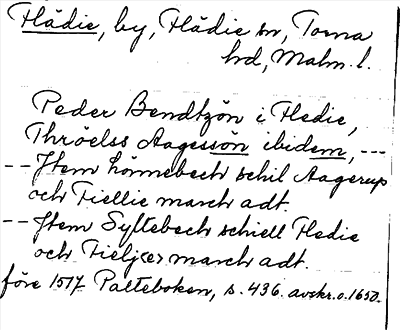 Flädie, by, Flädie sn, Torna
hrd, Malm. l.
Peder Bendtzön i Fledie,
Thröelss Aagessön ibidem, ---
-- Jtem Lönnebech schil Aagerup
och Fiellie march adt.
-- Jtem Syltebech schiell Fledie
och Fieljer march adt.
före 1517 Palteboken, s. 436. avskr. o. 1650.